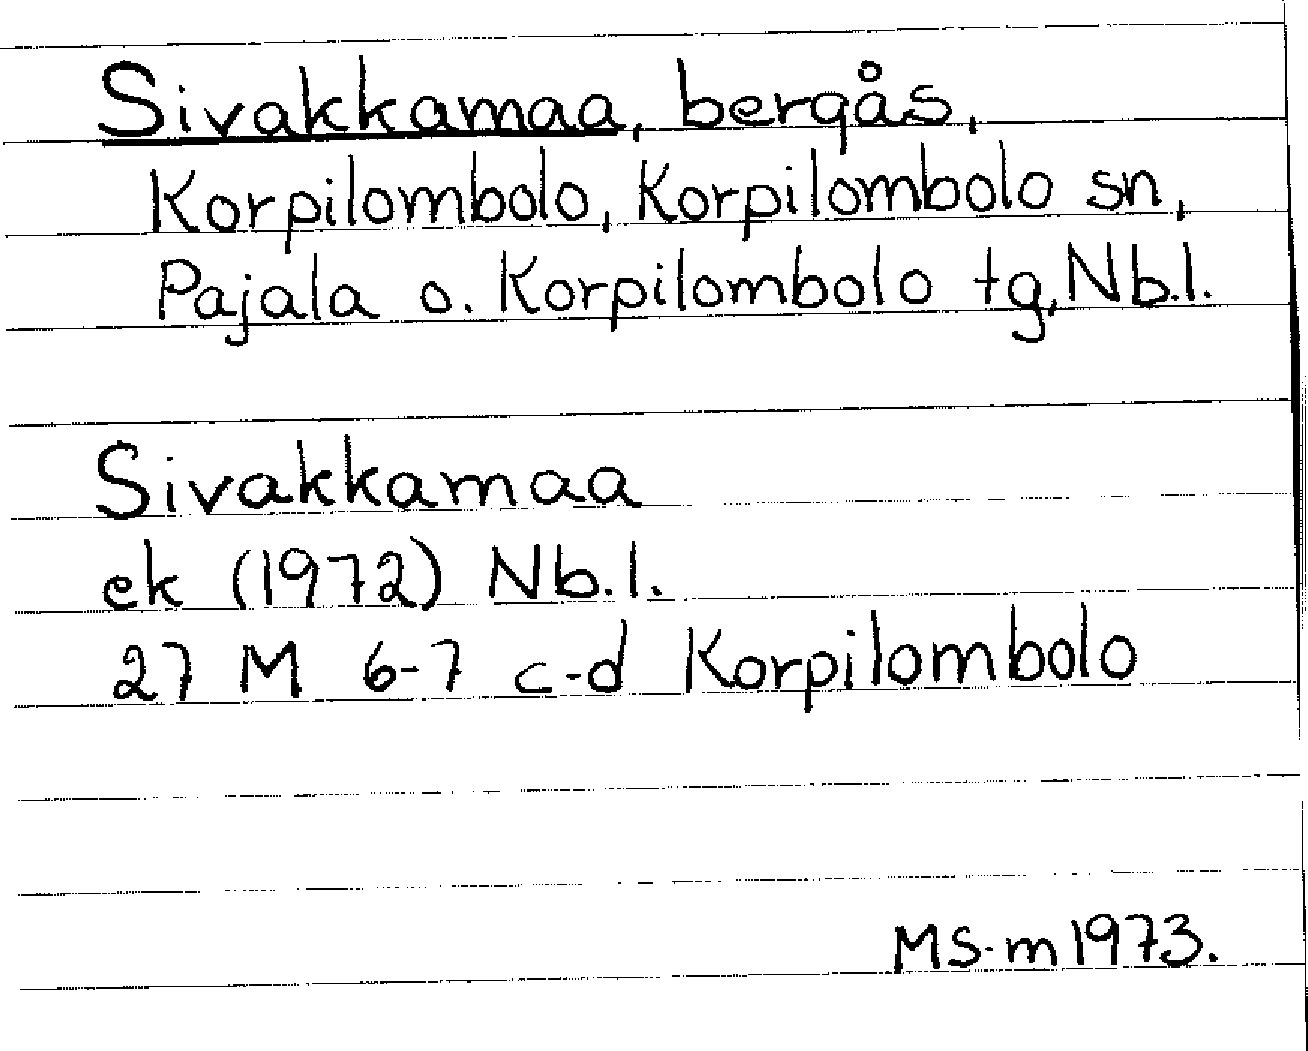 Sivakkamaa, bergås,
Korpilombolo, Korpilombolo sn,
Pajala o. Korpilombolo tg, Nb.l.
Sivakkamaa
ek (1972) Nb.l.
27 M 6-7 c-d Korpilombolo
MS-m 1973.